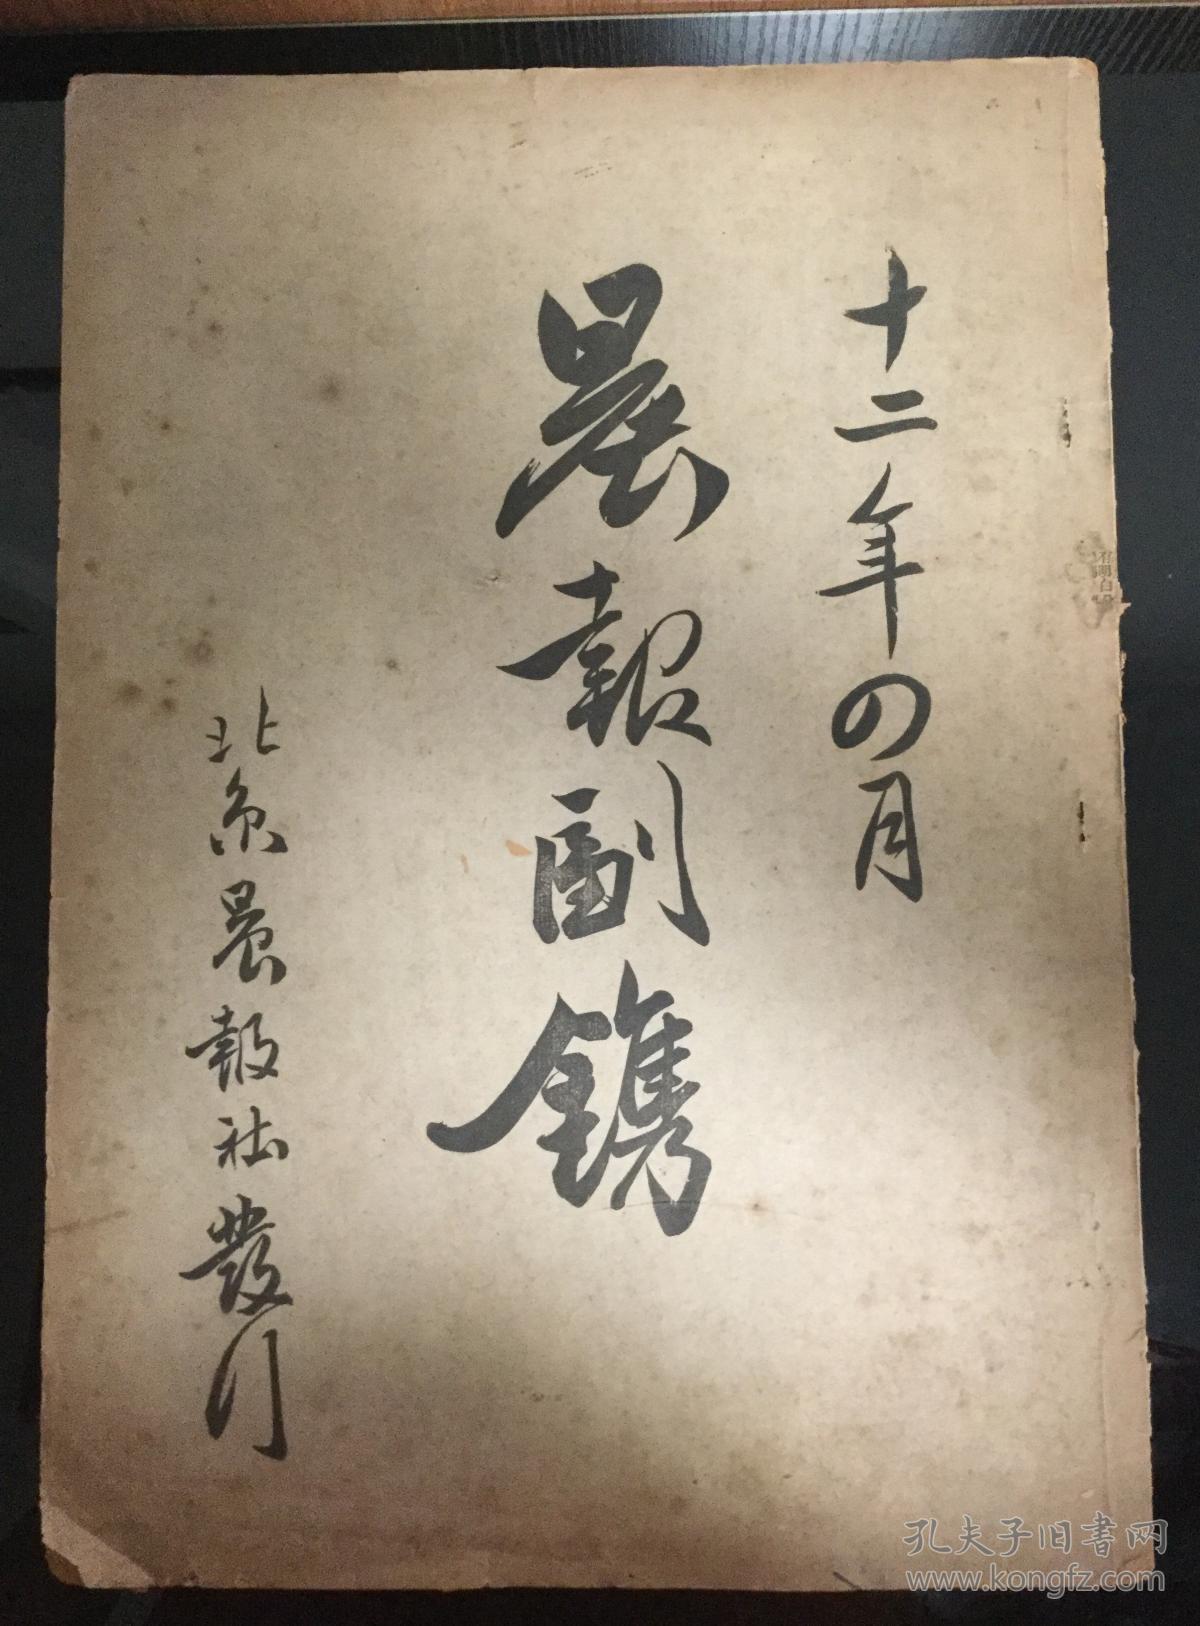 十二年四月
晨報副鐫
北京晨報社發行
孔夫子旧書网
www.kongfz.com